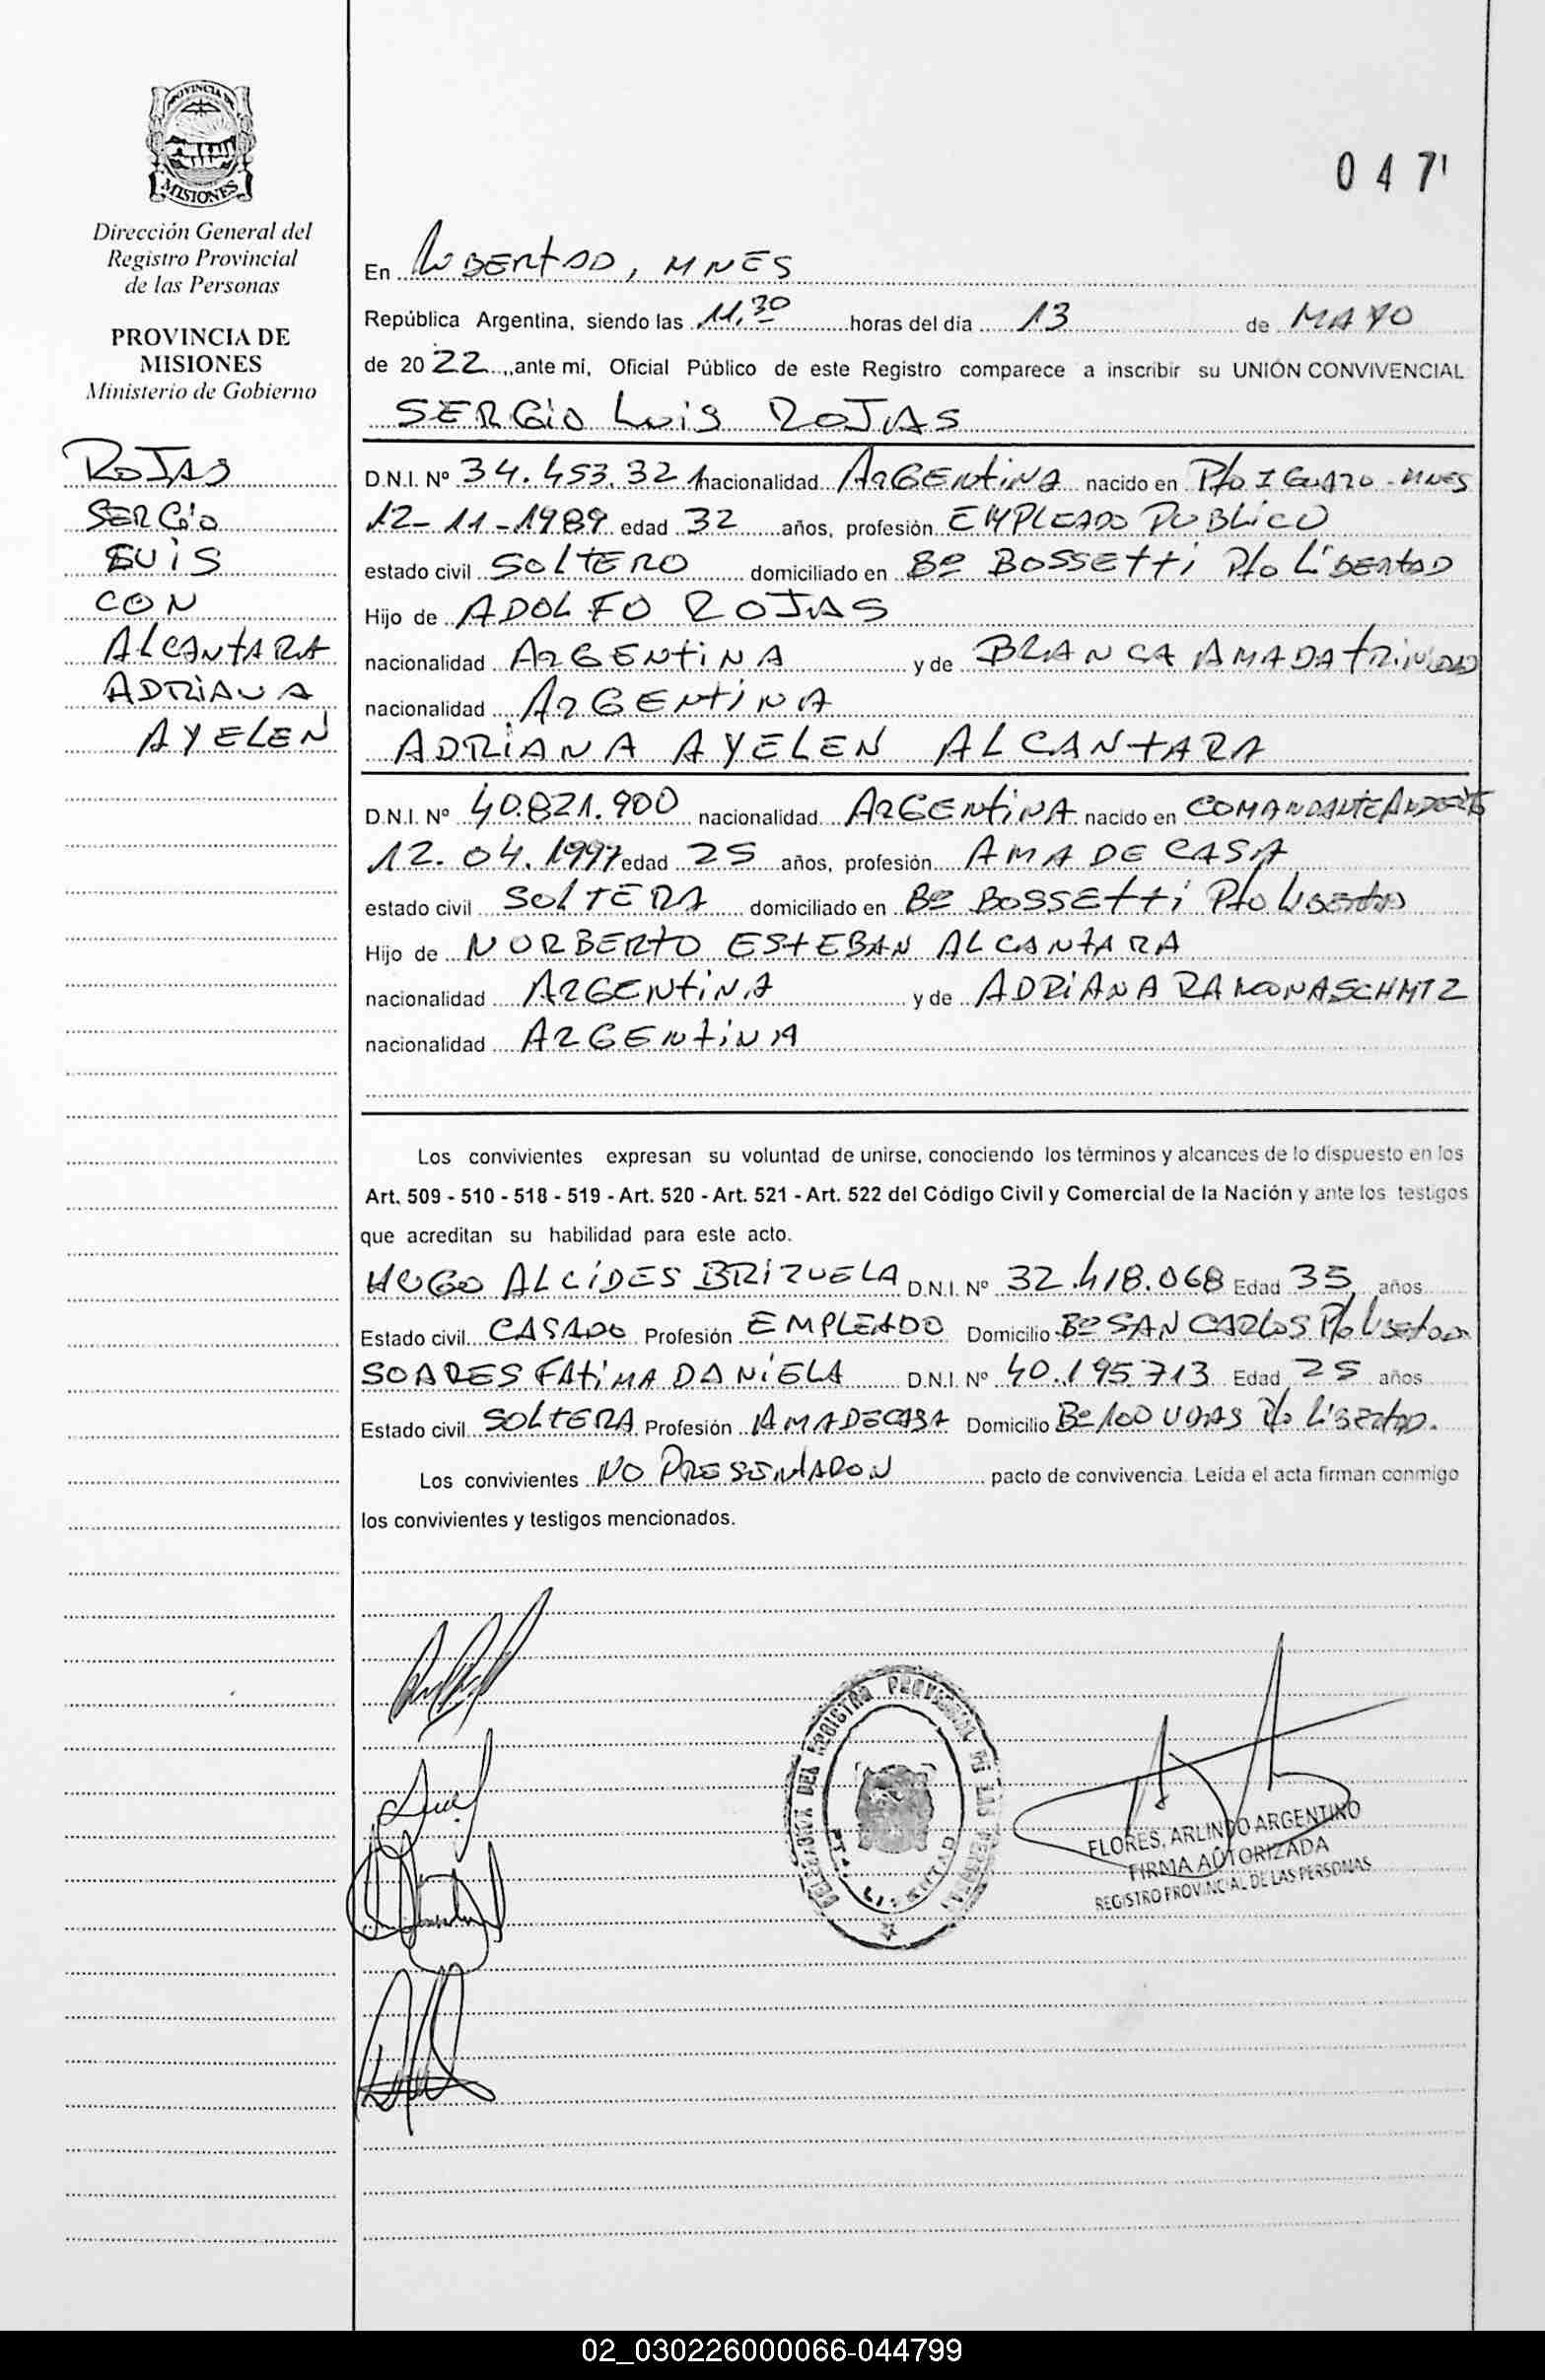 PROVINCIA DE
MISIONES
Dirección General del
Registro Provincial
de las Personas
PROVINCIA DE
MISIONES
Ministerio de Gobierno
ROJAS
SERGIO
LUIS
CON
ALCANTARA
ADRIANA
AYELEN
047
En LIBERTAD, MNES
República Argentina, siendo las 11,30 horas del día 13 de MAYO
de 2022, ante mí, Oficial Público de este Registro comparece a inscribir su UNIÓN CONVIVENCIAL
SERGIO LUIS ROJAS
D.N.I. Nº 34.453.321 nacionalidad ARGENTINA nacido en Pto IGUAZU - MNES
12-11-1989 edad 32 años, profesión EMPLEADO PUBLICO
estado civil SOLTERO domiciliado en Bº BOSSETTI Pto LIBERTAD
Hijo de ADOLFO ROJAS
nacionalidad ARGENTINA y de BLANCA AMADA TRINIDAD
nacionalidad ARGENTINA
ADRIANA AYELEN ALCANTARA
D.N.I. Nº 40.821.900 nacionalidad ARGENTINA nacido en COMANDANTE
12.04.1997 edad 25 años, profesión AMA DE CASA
estado civil SOLTERA domiciliado en Bº BOSSETTI Pto LIBERTAD
Hijo de NORBERTO ESTEBAN ALCANTARA
nacionalidad ARGENTINA y de ADRIANA RAMONA SCHMTZ
nacionalidad ARGENTINA
Los convivientes expresan su voluntad de unirse, conociendo los términos y alcances de lo dispuesto en los
Art. 509 - 510 - 518 - 519 - Art. 520 - Art. 521 - Art. 522 del Código Civil y Comercial de la Nación y ante los testigos
que acreditan su habilidad para este acto.
HUGO ALCIDES BRIZUELA D.N.I. Nº 32.418.068 Edad 35 años
Estado civil CASADO Profesión EMPLEADO Domicilio Bº SAN CARLOS Pto LIBERTAD
SOARES FATIMA DANIELA D.N.I. Nº 40.195.713 Edad 25 años
Estado civil SOLTERA Profesión AMA DE CASA Domicilio Bº 100 Pto LIBERTAD.
Los convivientes NO PRESENTARON pacto de convivencia. Leída el acta firman conmigo
los convivientes y testigos mencionados.
DEL REGISTRO PROVINCIAL DE LAS
FLORES, ARLINDO ARGENTINO
FIRMA AUTORIZADA
REGISTRO PROVINCIAL DE LAS PERSONAS
02_030226000066-044799